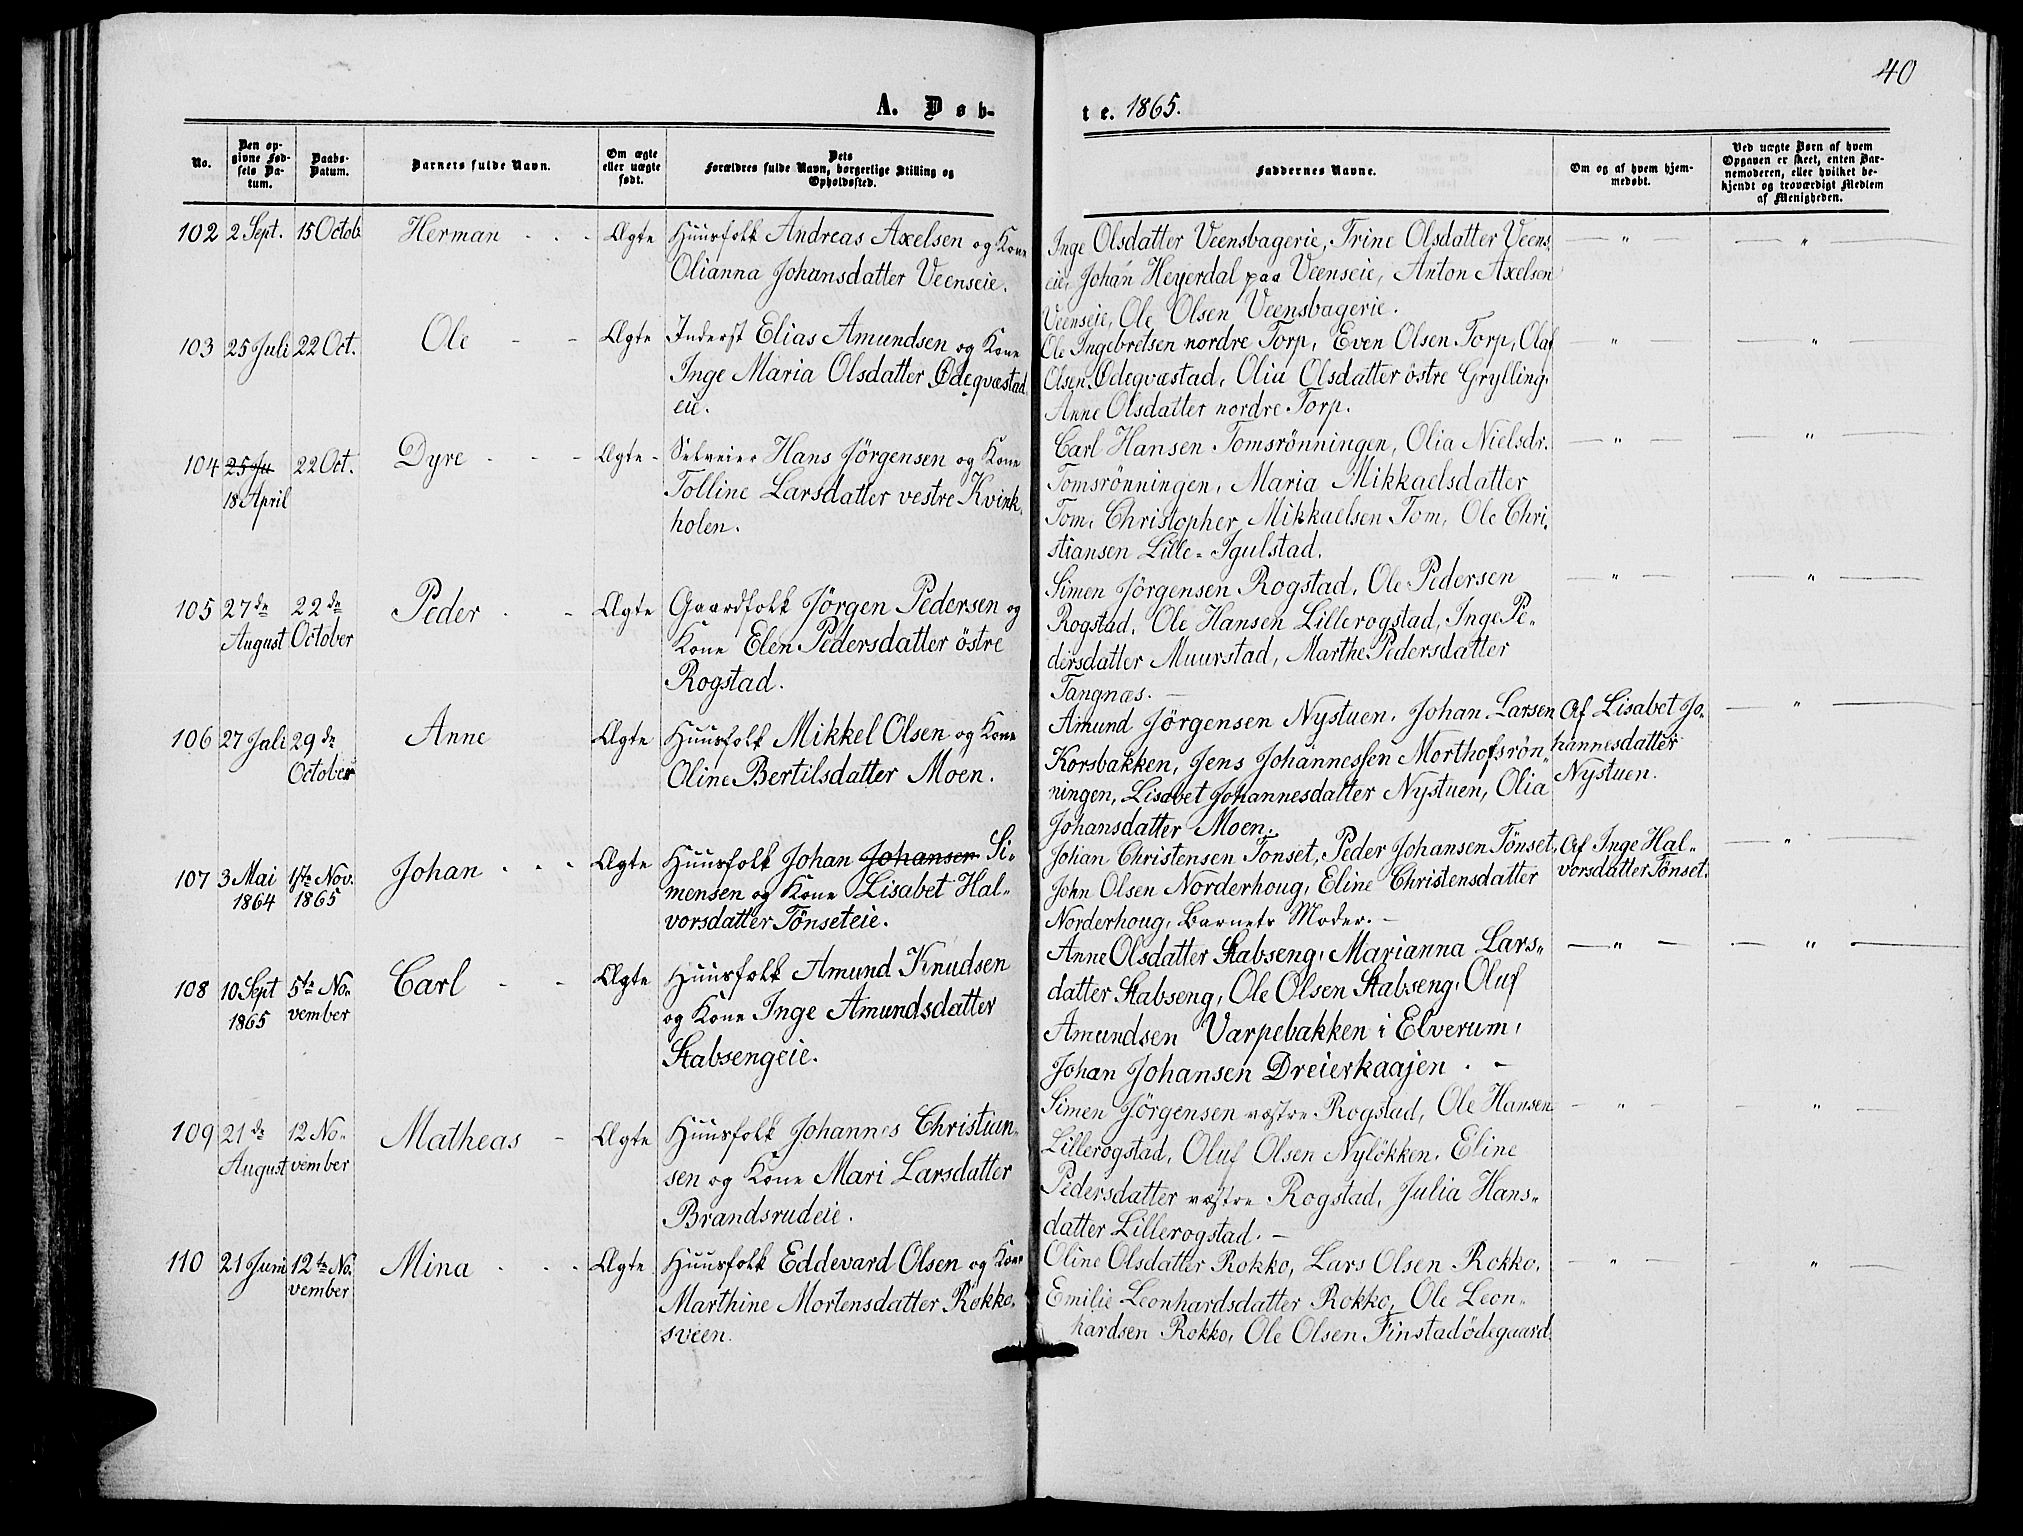 40
A. Døb-
te. 1865.
No.
Den op-
givne Fød-
sels Da-
tum.
Daabs-
Datum.
Barnets fulde Navn.
Om ægte
eller uægte
født.
Dets
Forældres fulde Navn, borgerlige Stilling og
Opholdssted.
Faddernes Navne.
Om og af hvem hjem-
medøbt.
Ved uægte Børn af hvem
Opgaven er skeet, enten Bar-
nemoderen, eller hvilket be-
kjendt og troværdigt Medlem
af Menigheden.
102 2 Sept. 15 Octob Herman - - - Ægte Huusfolk Andreas Axelsen og Kone
Olianna Johansdatter Veenseie.
Inge Olsdatter Veensbagerie, Trine Olsdatter Veens
eie, Johan Heyerdal paa Veenseie, Anton Axelsen
Veenseie, Ole Olsen Veensbagerie.
— " — — " —
103 25 Juli 22 Oct. Ole - - Ægte Inderst Elias Amundsen og Kone
Inge Maria Olsdatter Ødeqvæstad
eie.
Ole Ingebretsen nordre Torp, Even Olsen Torp, Olaf
Olsen Ødeqvæstad, Olia Olsdatter östre Grylling,
Anne Olsdatter nordre Torp.
— " — — " —
104 25 Ju 22 Oct. Dyre - - - Ægte - Selveier Hans Jörgensen og Kone
18 April Tolline Larsdatter vestre Kvink-
holen.
Carl Hansen Tomsrönningen, Olia Nielsdr.
Tomsrönningen, Maria Mikkaelsdatter
Tom, Christopher Mikkaelsen Tom, Ole Chri-
stiansen Lille-Igulstad.
— " — — " —
105 27de 22de Peder - - Ægte Gaardfolk Jörgen Pedersen og
August October Kone Elen Pedersdatter östre
Rogstad.
Simen Jörgensen Rogstad, Ole Pedersen
Rogstad, Ole Hansen Lillerogstad, Inge Pe-
dersdatter Muurstad, Marthe Pedersdatter
Tangnæs. —
— " — — " —
106 27 Juli 29de Anne Ægte Huusfolk Mikkel Olsen og Kone
October Oline Bertilsdatter Moen.
Amund Jörgensen Nystuen, Johan Larsen
Korsbakken, Jens Johannessen Morthofsrön-
ningen, Lisabet Johannesdatter Nystuen, Olia
Johansdatter Moen.
Af Lisabet Jo-
hannesdatter
Nystuen.
— " —
107 3 Mai 1ste Nov. Johan - - - Ægte Huusfolk Johan Johansen Si-
1864 1865 mensen og Kone Lisabet Hal-
vorsdatter Tönseteie.
Johan Christensen Tonset, Peder Johansen Tönset,
John Olsen Norderhoug, Eline Christensdatter
Norderhoug, Barnets Moder. -
Af Inge Hal-
vorsdatter Tönset.
— " —
108 10 Sept 5te No- Carl - - Ægte Huusfolk Amund Knudsen
1865 vember og Kone Inge Amundsdatter
Stabsengeie.
Anne Olsdatter Stabseng, Marianna Lars-
datter Stabseng, Ole Olsen Stabseng, Oluf
Amundsen Varpebakken i Elverum,
Johan Johansen Dreierkaajen. -
— " — — " —
109 21de 12 No- Matheas - Ægte Huusfolk Johannes Christian-
August vember sen og Kone Mari Larsdatter
Brandsrudeie.
Simen Jörgensen vestre Rogstad, Ole Hansen
Lillerogstad, Oluf Olsen Nylökken, Eline
Pedersdatter vestre Rogstad, Julia Hans-
datter Lillerogstad. -
— " — — " —
110 21 Juni 12te No- Mina - - - Ægte Huusfolk Eddevard Olsen og Kone
vember Marthine Mortensdatter Rokko-
sveen.
Oline Olsdatter Rokko, Lars Olsen Rokko,
Emilie Leonhardsdatter Rokko, Ole Leon-
hardsen Rokko, Ole Olsen Finstadödegaard.
— " — — " —